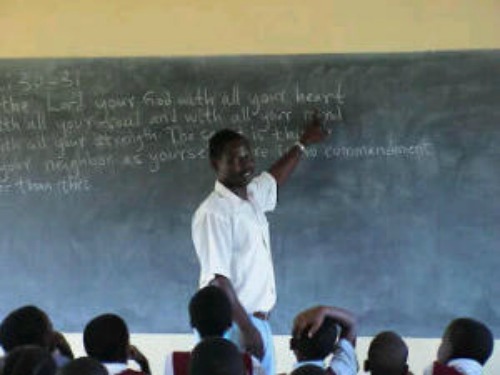 30-31
the Lord your God with all your heart
with all your Soul and with all your mind
with all your strength. The is this
your neighbor as yourself no commandment
than this